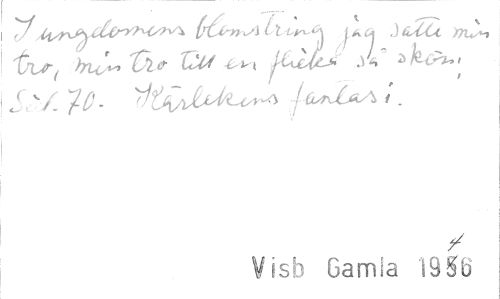 I ungdomens blomstring jag satte min
tro, min tro till en flicka så skön;
Sid. 70. Kärlekens fantasi.
4
Visb Gamla 1956